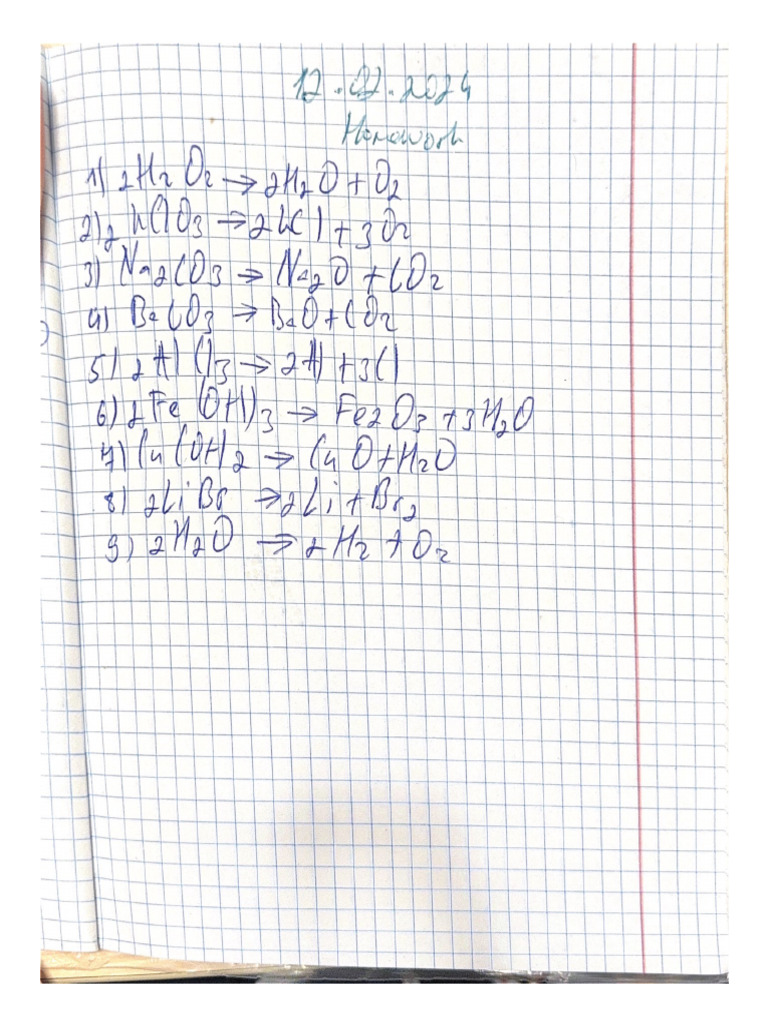 12.02.2024
Homework
1) 2H2O2 → 2H2O + O2
2) 2KClO3 → 2KCl + 3O2
3) Na2CO3 → Na2O + CO2
4) BaCO3 → BaO + CO2
5) 2AlCl3 → 2Al + 3Cl
6) 2Fe(OH)3 → Fe2O3 + 3H2O
7) Cu(OH)2 → CuO + H2O
8) 2LiBr → 2Li + Br2
9) 2H2O → 2H2 + O2